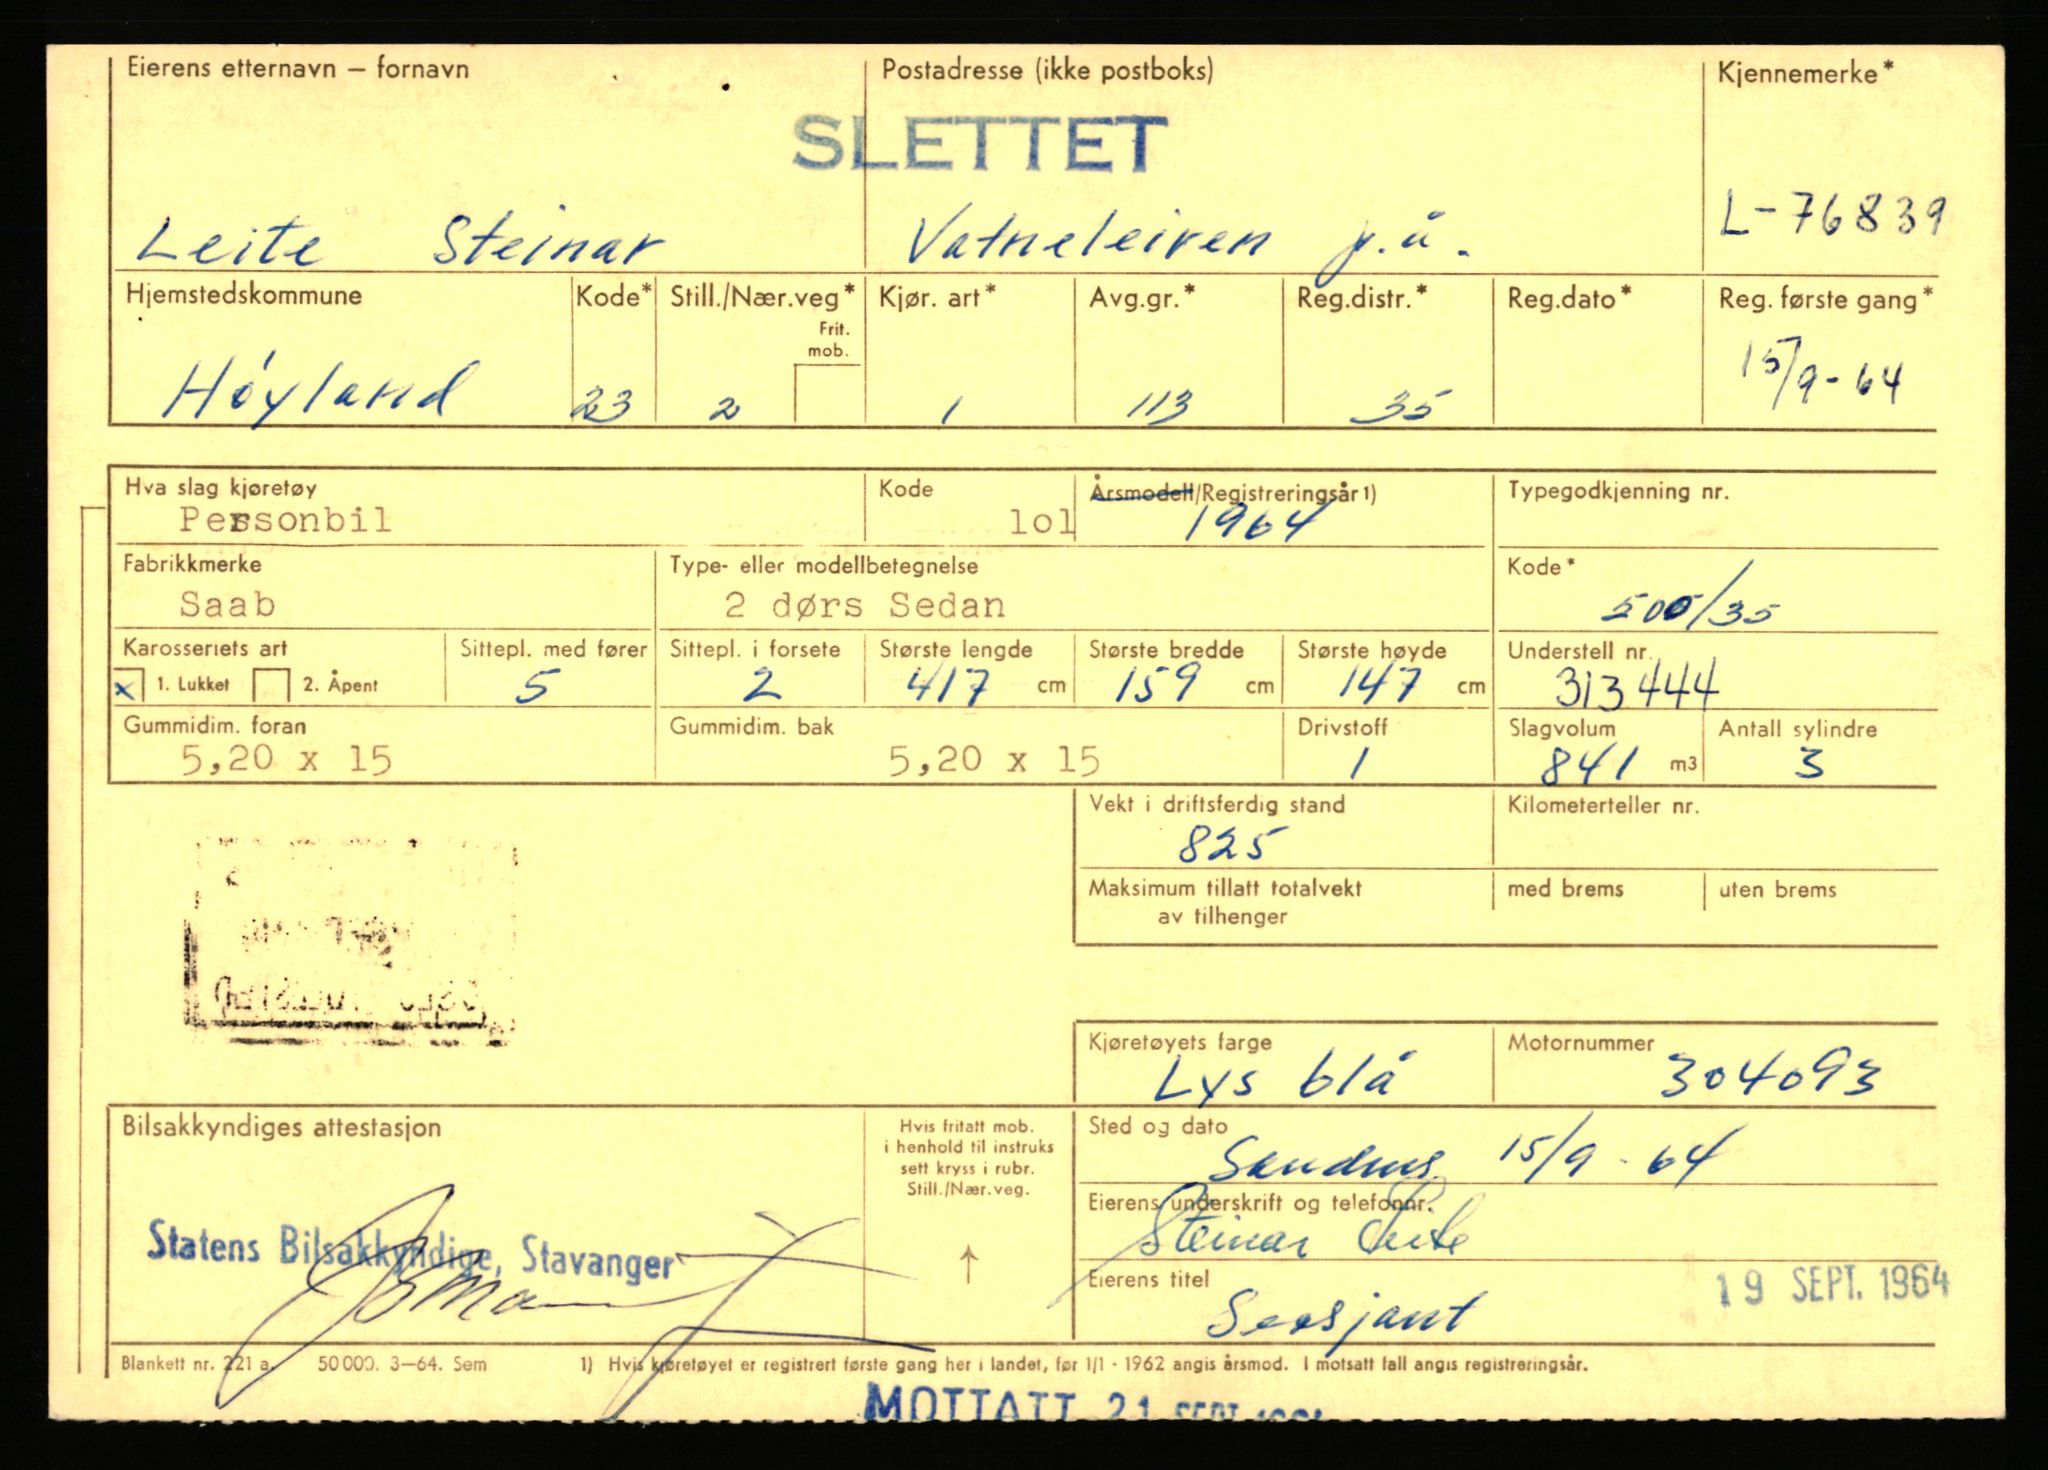 Eierens etternavn – fornavn Postadresse (ikke postboks) Kjennemerke*
SLETTET
Leite Steinar Vatneleiren p.å. L-76839
Hjemstedskommune Kode* Still./Nær.veg* Kjør. art* Avg.gr.* Reg.distr.* Reg.dato* Reg. første gang*
Frit.
mob.
Høyland 23 2 1 113 35 15/9-64
Hva slag kjøretøy Kode Årsmodell/Registreringsår 1) Typegodkjenning nr.
Personbil lol 1964
Fabrikkmerke Type- eller modellbetegnelse Kode*
Saab 2 dørs Sedan 500/35
Karosseriets art Sittepl. med fører Sittepl. i forsete Største lengde Største bredde Største høyde Understell nr.
x 1. Lukket 2. Åpent 5 2 417 cm 159 cm 147 cm 313444
Gummidim. foran Gummidim. bak Drivstoff Slagvolum Antall sylindre
5,20 x 15 5,20 x 15 1 841 m3 3
Vekt i driftsferdig stand Kilometerteller nr.
825
Maksimum tillatt totalvekt med brems uten brems
av tilhenger
Kjøretøyets farge Motornummer
Lys blå 304093
Bilsakkyndiges attestasjon Hvis fritatt mob. Sted og dato
i henhold til instruks
sett kryss i rubr.
Still./Nær.veg.
Sandnes 15/9-64
Eierens underskrift og telefonnr.
Statens Bilsakkyndige, Stavanger Steinar Leite
↑
Eierens titel 19 SEPT. 1964
Sersjant
Blankett nr. 221 a. 50000. 3–64. Sem 1) Hvis kjøretøyet er registrert første gang her i landet, før 1/1 - 1962 angis årsmod. I motsatt fall angis registreringsår.
MOTTATT 21 SEPT